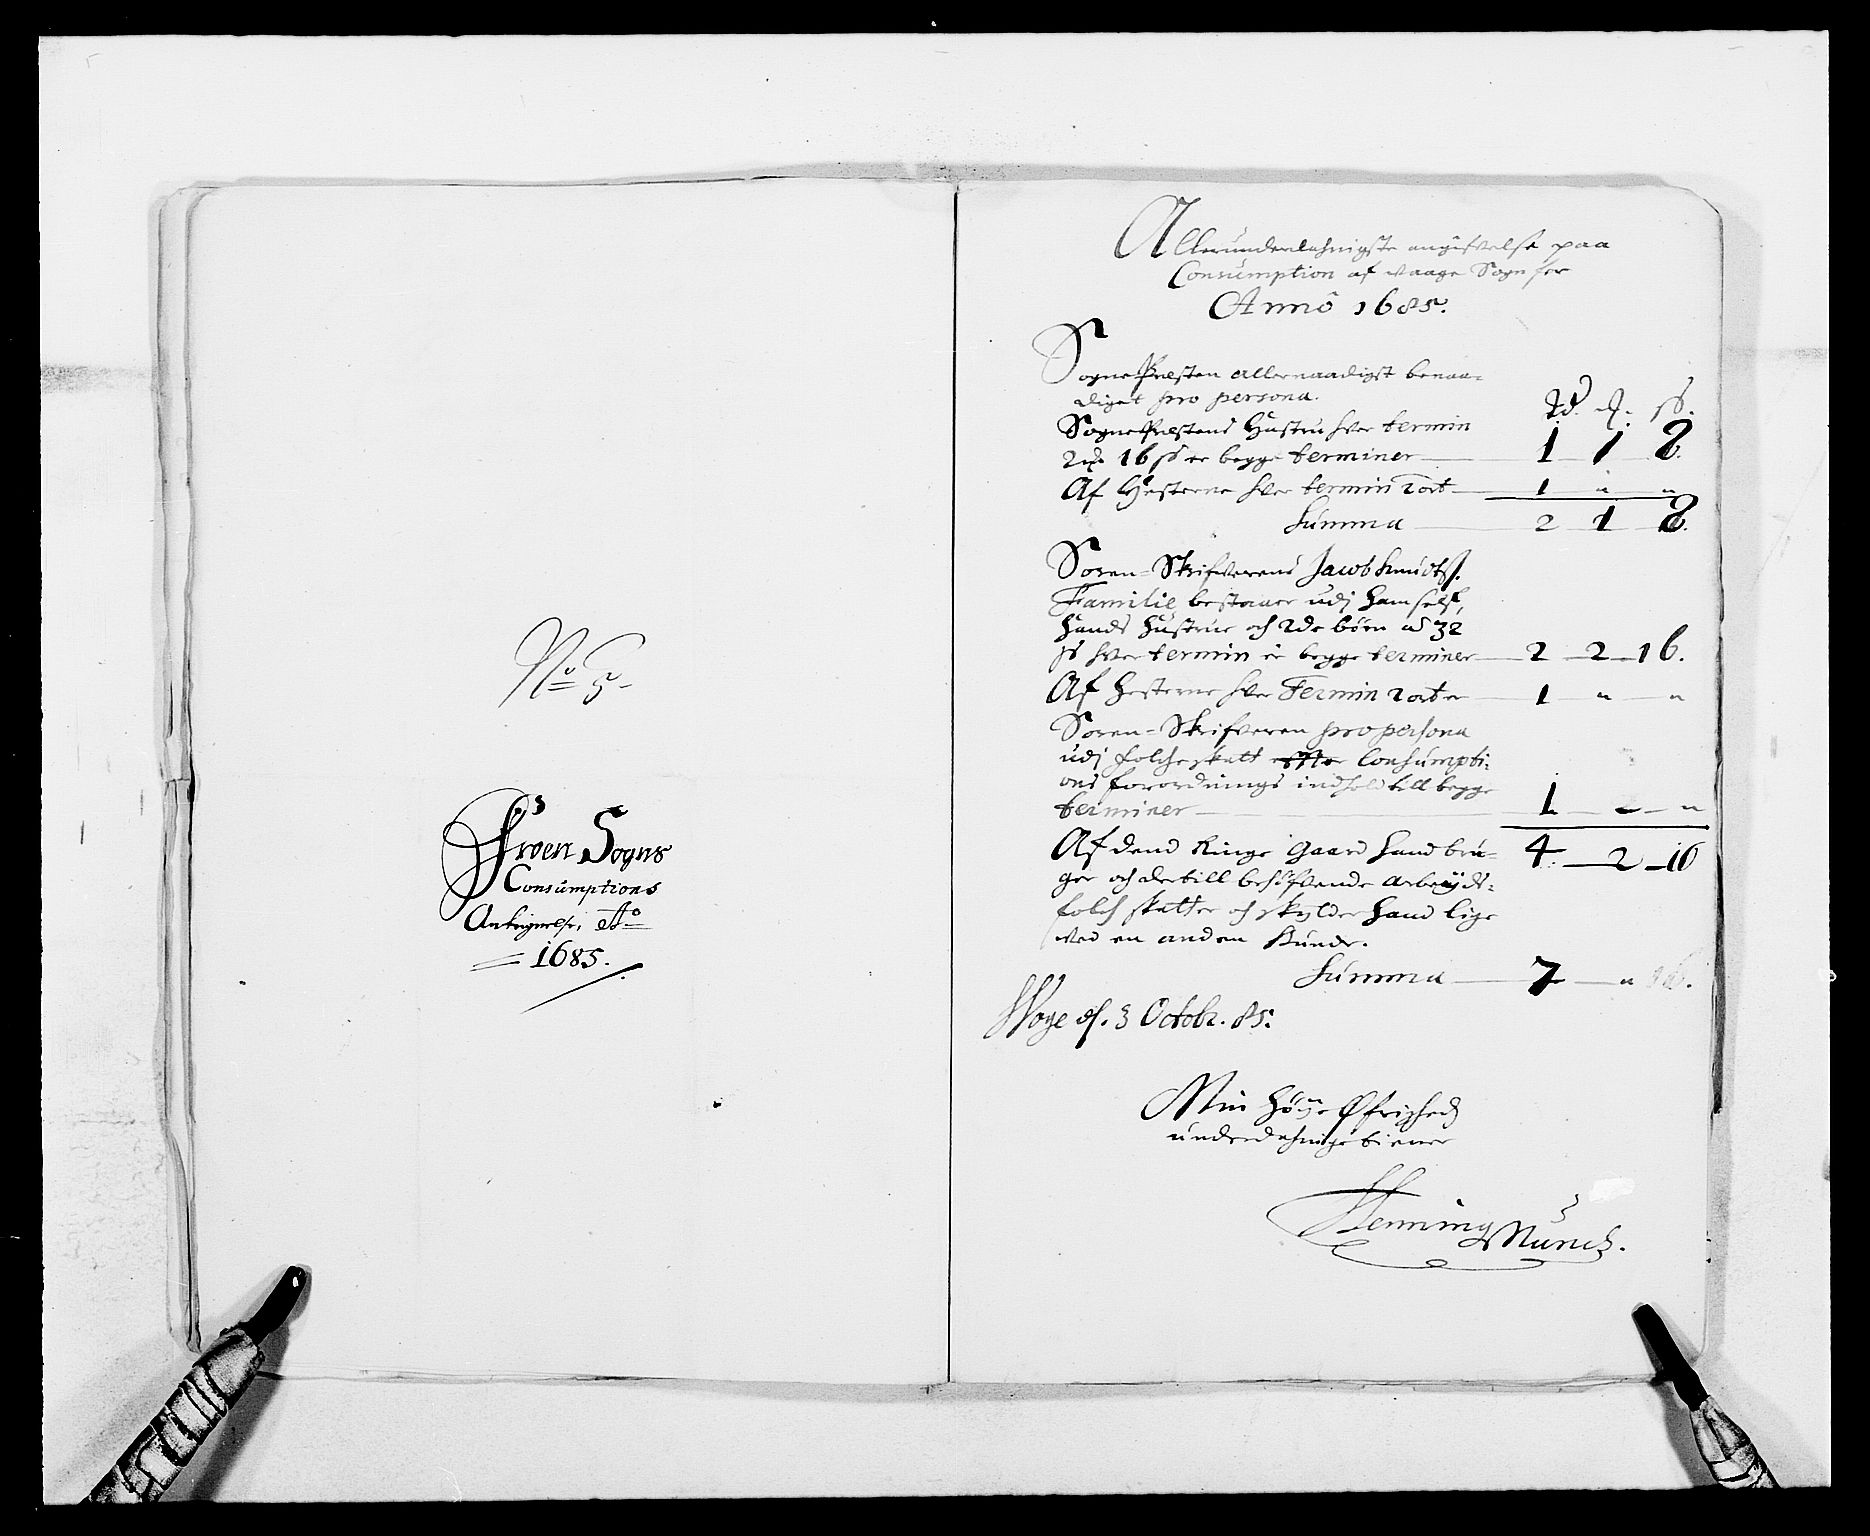 No 5.
Froen Sogns
Consumptions
Ao
1685.
Allerunderdahnigste angifvelse paa
Consumption af Vaage Sogn for
Anno 1685.
Sogne Præsten allernaadigst benaa-
diget pro persona.
Rd. ß.
Sogne Præstens Hustru hver termin
2 16 ß er begge terminer 1 1 8.
Af Hesterne hver termin 2 ort 1 " "
Summa 2 1 8.
Soren-Skrifverens Jacob Knudtsß.
Familie bestaaer udj ham self,
hands Hustrue och 2de börn a 32
ß hver termin er begge terminer 2 2 16.
Af hesterne hver Termin 2 orter 1 " "
Soren-Skrifveren pro persona
udj folcheskatt efter Consumpti-
ons forordnings indhold till begge
terminer 1 " "
4. 2 16
Af dend Ringe gaard hand bru-
ger och dertill behöfvende arbeyds-
folch skatter och skylder hand lige
ved en anden bunde.
Summa 7 " 16.
Woge d. 3 Octobr. 85.
Min höye Øfrighed
underdahnige tiener
Henning Munch.